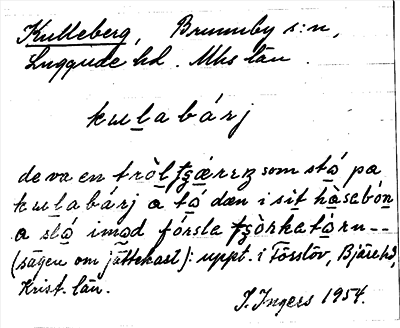 Kulleberg, Brunnby s:n,
Luggude hd. Mhs län.
kɯlabárj
de va en tròl tʂǽrɛŋ som stó̠ pa
kɯlabárj a tó̠ dæn i sit hàsabón
a sló̠ imo̠d försla tʂörkató̠rn--
(sägen om jättekast): uppt. i Förslöv, Bjäre hd,
Krist. län.
I. Ingers 1954.